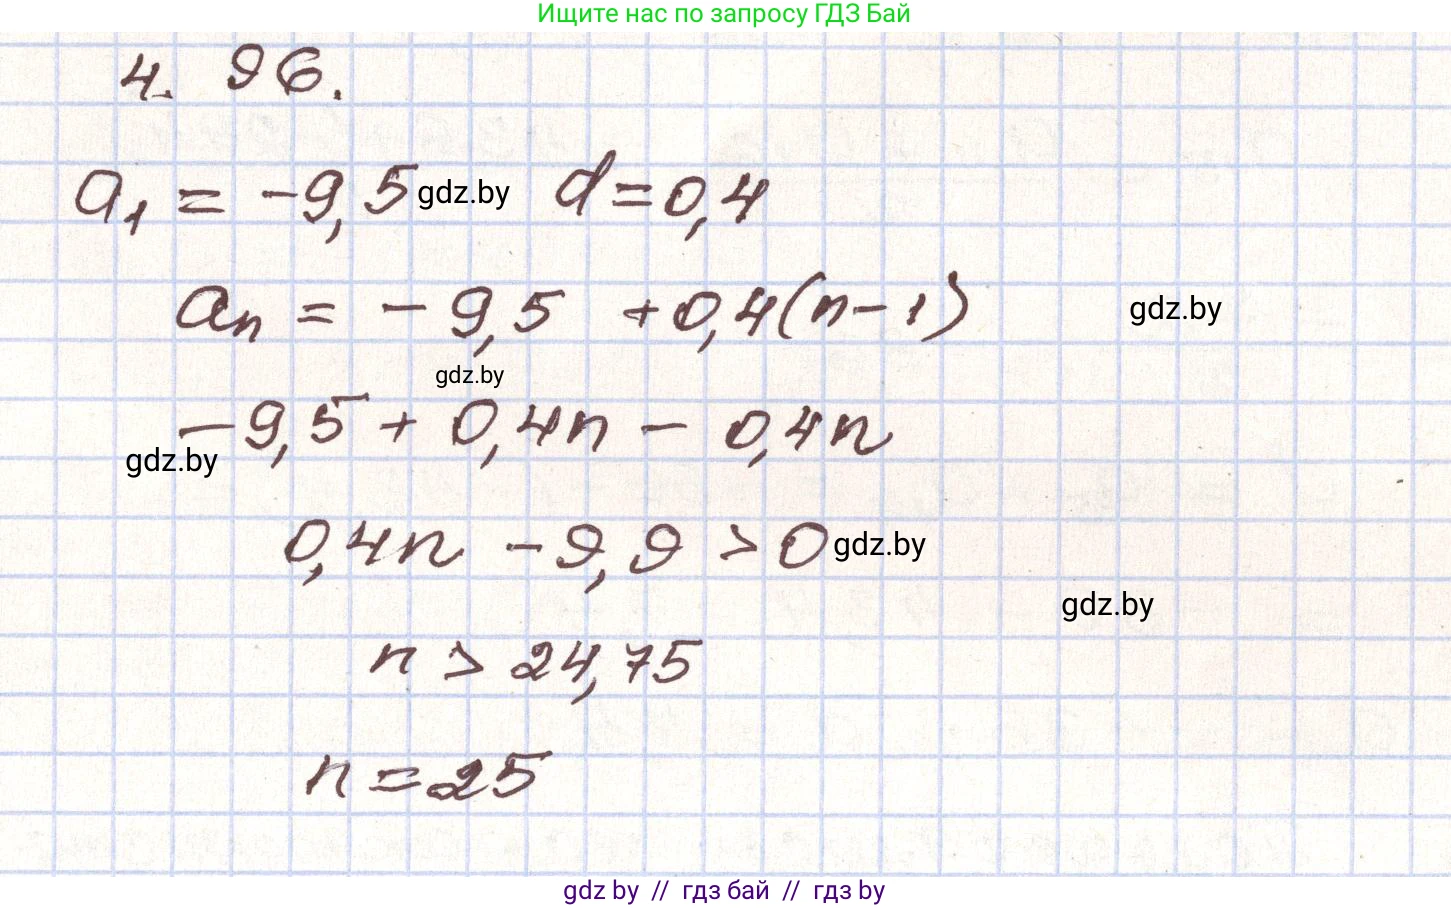 Ищите нас по запросу ГДЗ Бай
4. 96.
a₁ = -9,5 gdz.by d = 0,4
aₙ = - 9,5 + 0,4(n - 1)
gdz.by
gdz.by
- 9,5 + 0,4n - 0,4n
gdz.by
0,4n - 9,9 > 0 gdz.by
gdz.by
n > 24,75
n = 25
gdz by // гдз бай // гдз by